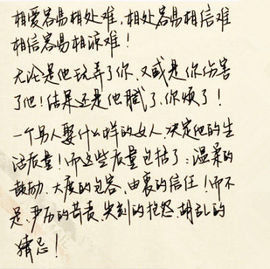 相爱容易相处难，相处容易相信难
相信容易相谅难！
无论是他玩弄了你，又或是你伤害
了他！结果还是他腻了，你烦了！
一个男人娶什么样的女人，决定他的生
活质量！而这些质量包括了：温柔的
鼓励、大度的包容、由衷的信任！而不
是、严厉的苛责、尖刻的抱怨、胡乱的
猜忌！